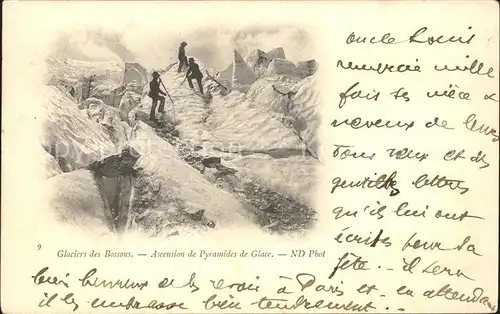 oncle Louis
remercie mille
fois ses nièce et
neveux de leurs
bons vœux et des
gentilles lettres
qu'ils lui ont
écrites pour sa
fête... il sera
9 Glaciers des Bossons. — Ascension de Pyramides de Glace. — ND Phot
bien heureux de les revoir à Paris et en attendant
il les embrasse bien tendrement...